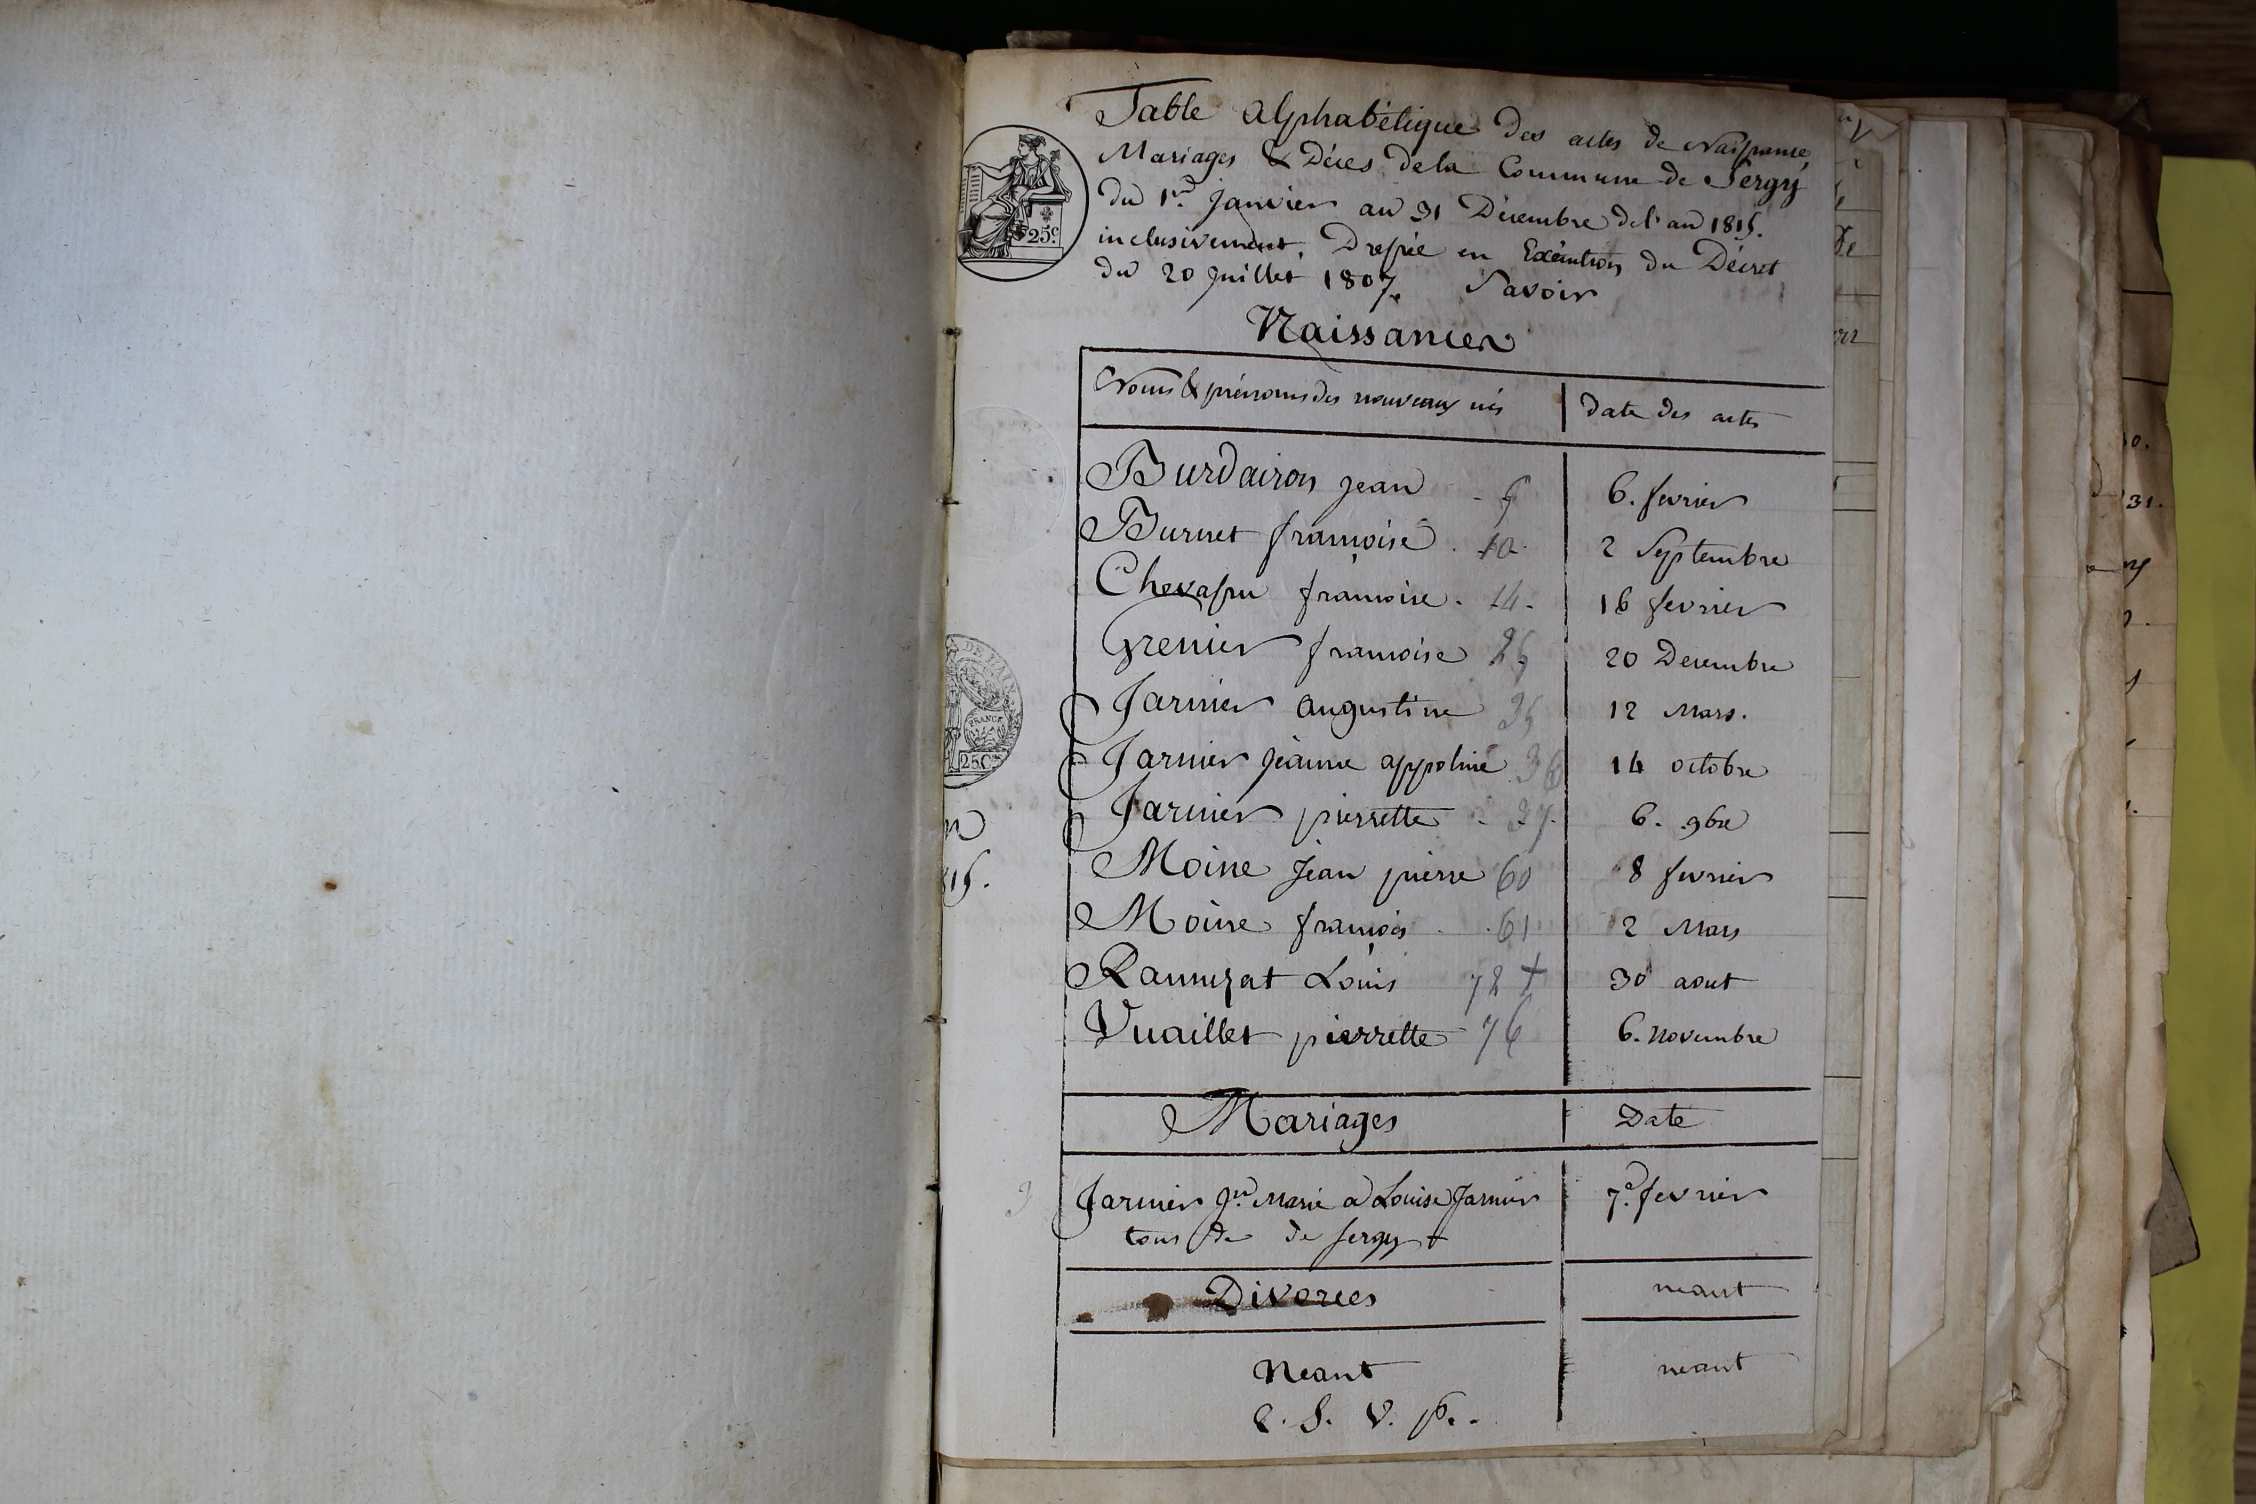 Table alphabétique des actes de Naissance,
Mariages & Décès de la Commune de Sergy
du 1er. Janvier au 31 Décembre de l'an 1815.
inclusivement, Dressée en Exécution du Décret
du 20 Juillet 1807. Savoir
25c.
Naissances
Noms & prénoms des nouveaux nés | Date des actes
Burdairon Jean - 9 | 6. fevrier
Burnet françoise . 10. | 2 Septembre
Chevassu françoise . 14. | 16 fevrier
Grenier françoise 25 | 20 Decembre
Jarnier augustine 35 | 12 Mars.
Jarnier Jeanne appoline 36 | 14 octobre
Jarnier pierrette . 37. | 6. 9bre
Moine Jean pierre 60 | 8 fevrier
Moine françois . 61 | 2 Mars
Ramuzat Louis 72 + | 30 aout
Vuaillet pierrette 76 | 6. Novembre
Mariages | Date
Jarnier Jn. Marie à Louise Jarnier | 7e. fevrier
tous de de Sergy +
Divorces | neant
Neant | neant
T. S. V. p..
FRANCE
25C